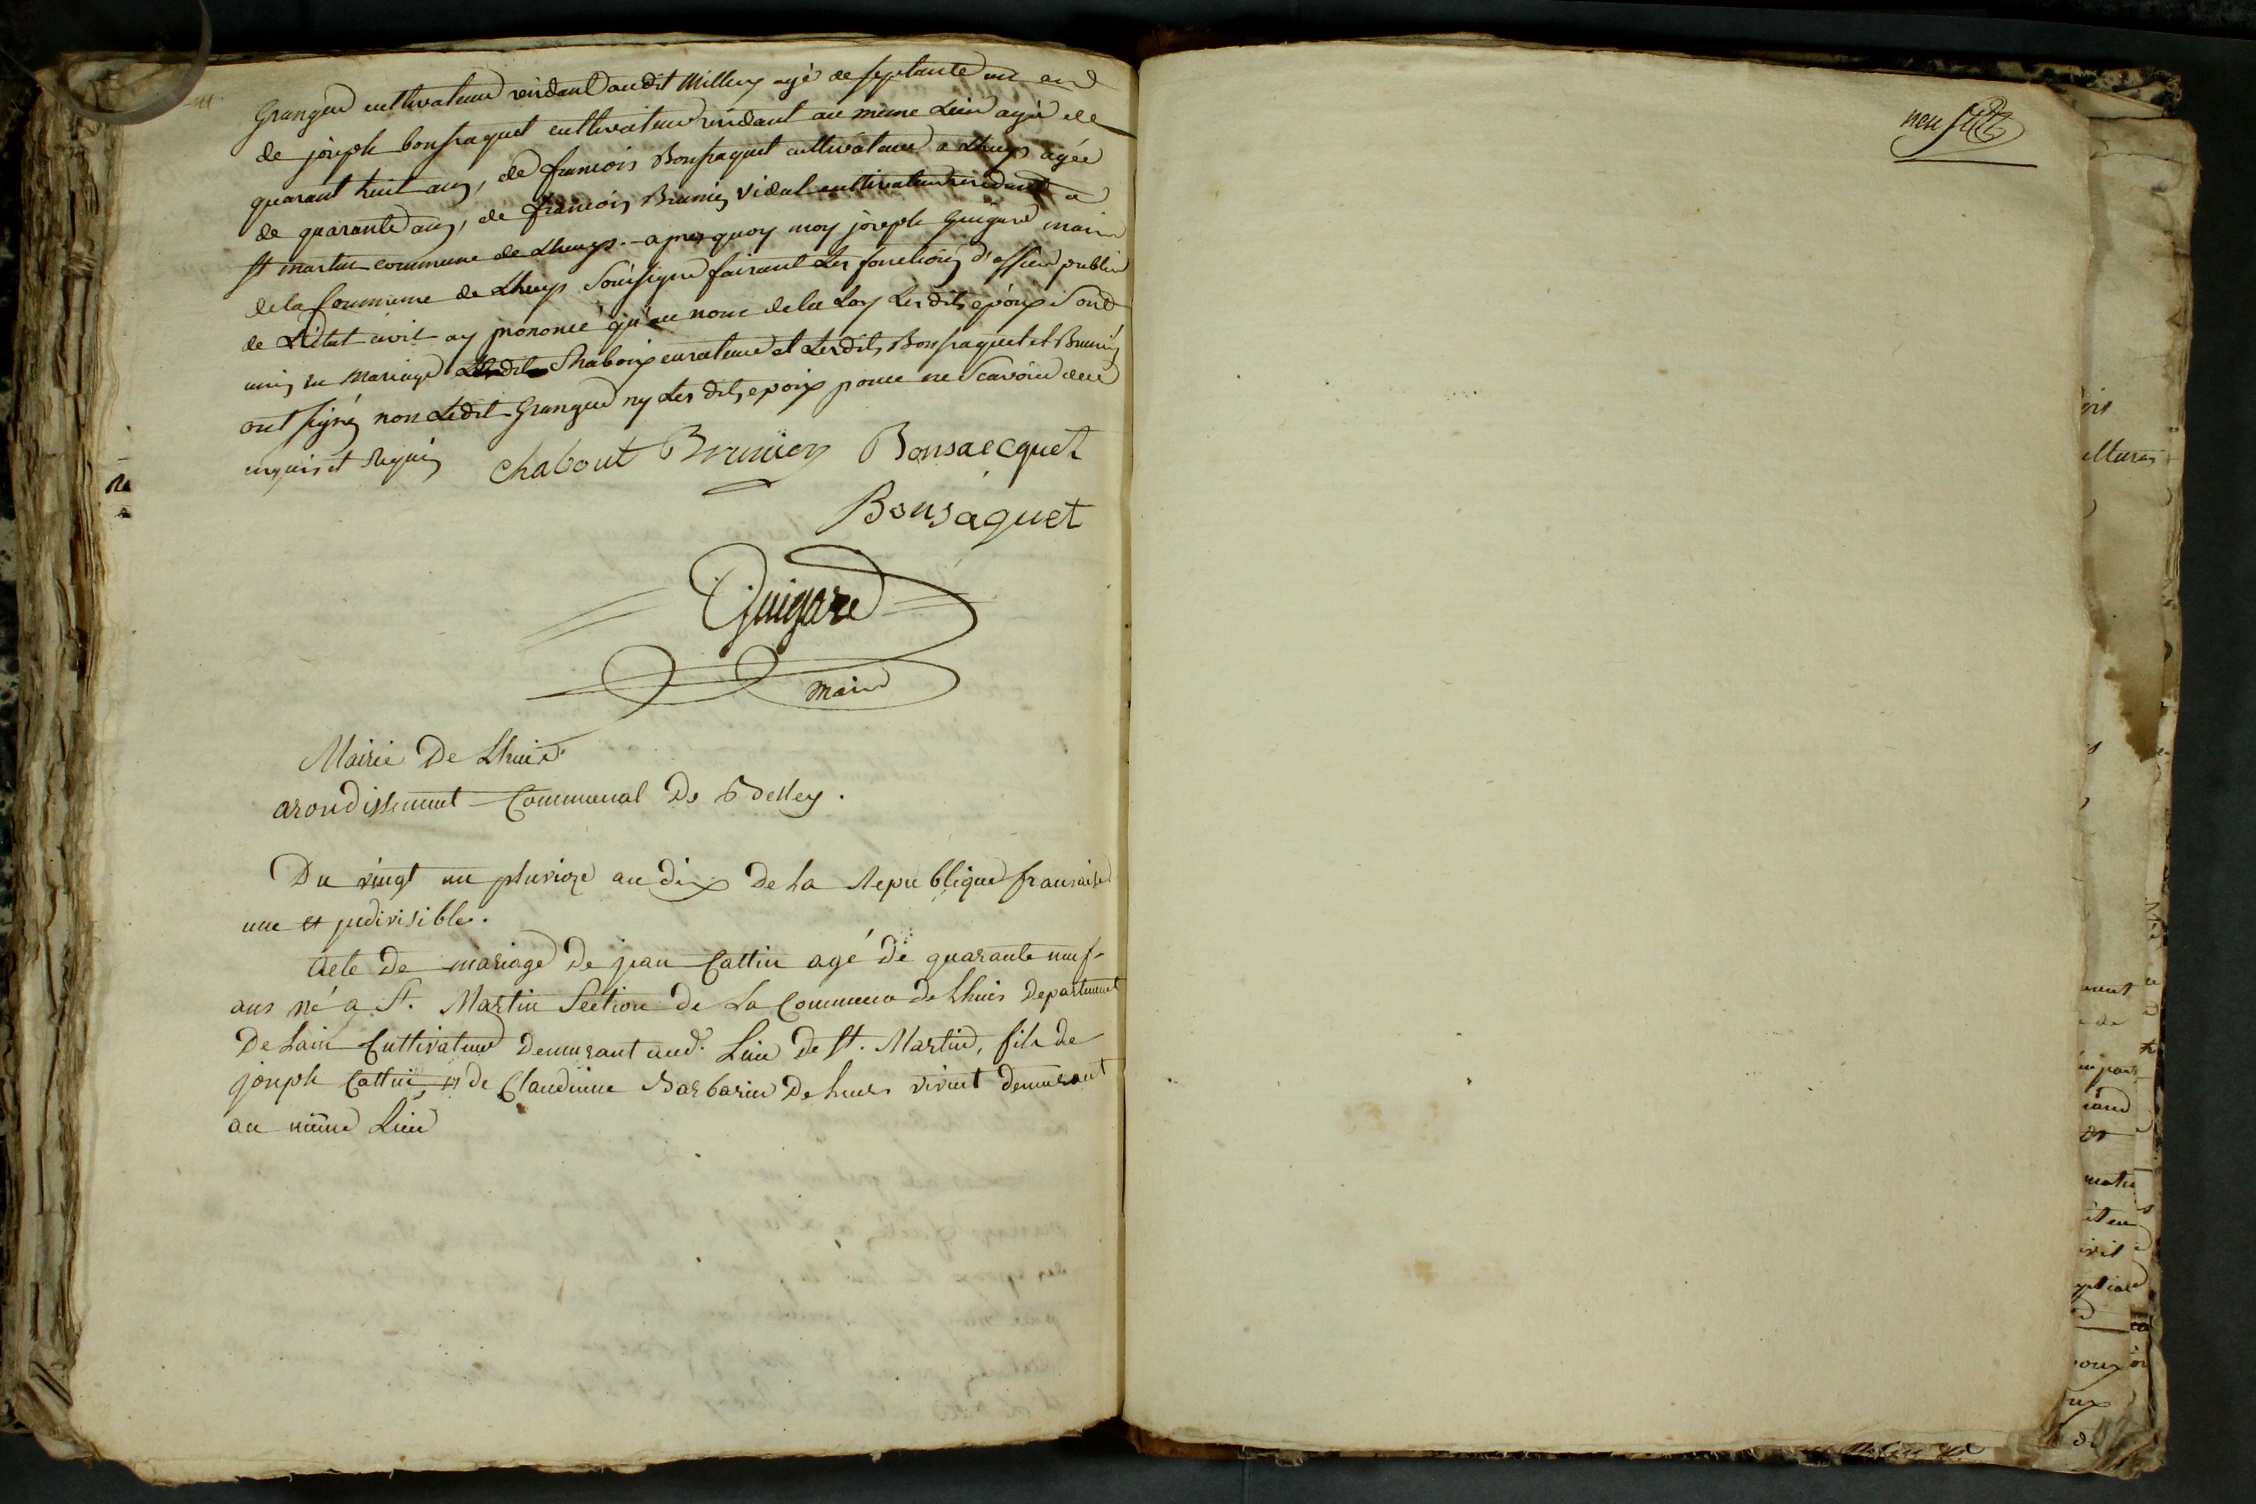 Granger cultivateur residant audit Millieu agé de septante un ans
de joseph bonsaquet cultivateur residant au meme Lieu agé de
quarant huit ans, de francois Bonsaquet cultivateur a Lhuys agée
de quarante ans, de francois Brunier Vidal cultivateur residant a
st martin commune de Lhuys. apres quoy moy joseph Guigard maire
de la Commune de Lhuys Soussigné faisant Les fonctions d'officier public
de L'état civil ay prononcé qu'au nom de la Loy Les dits epoux Sont
unis en mariage Chaboux curateur et Lesdits Bonsaquet et Brunier
ont signés non Ledit Granger ny Les dits epoix pour ne Scavoir de ce
enquis et Requis
Chabout Brunier Bonsaecquet
Bonsaquet
Guigard
maire
Mairie De Lhuis
arondissement Communal De Belley.
Du vingt un pluvioze an dix De La Republique francaise
une et jndivisible.
acte De mariage De jean Cattin agé de quarante neuf
ans né a St. Martin Section De La Commune de Lhuis Departement
De Lain Cultivateur Demeurant aud. Lieu De St. Martin, fils de
joseph Cattin, et de Claudinne Barbarin De leurs vivint demeurant
au même Lieu
neuf